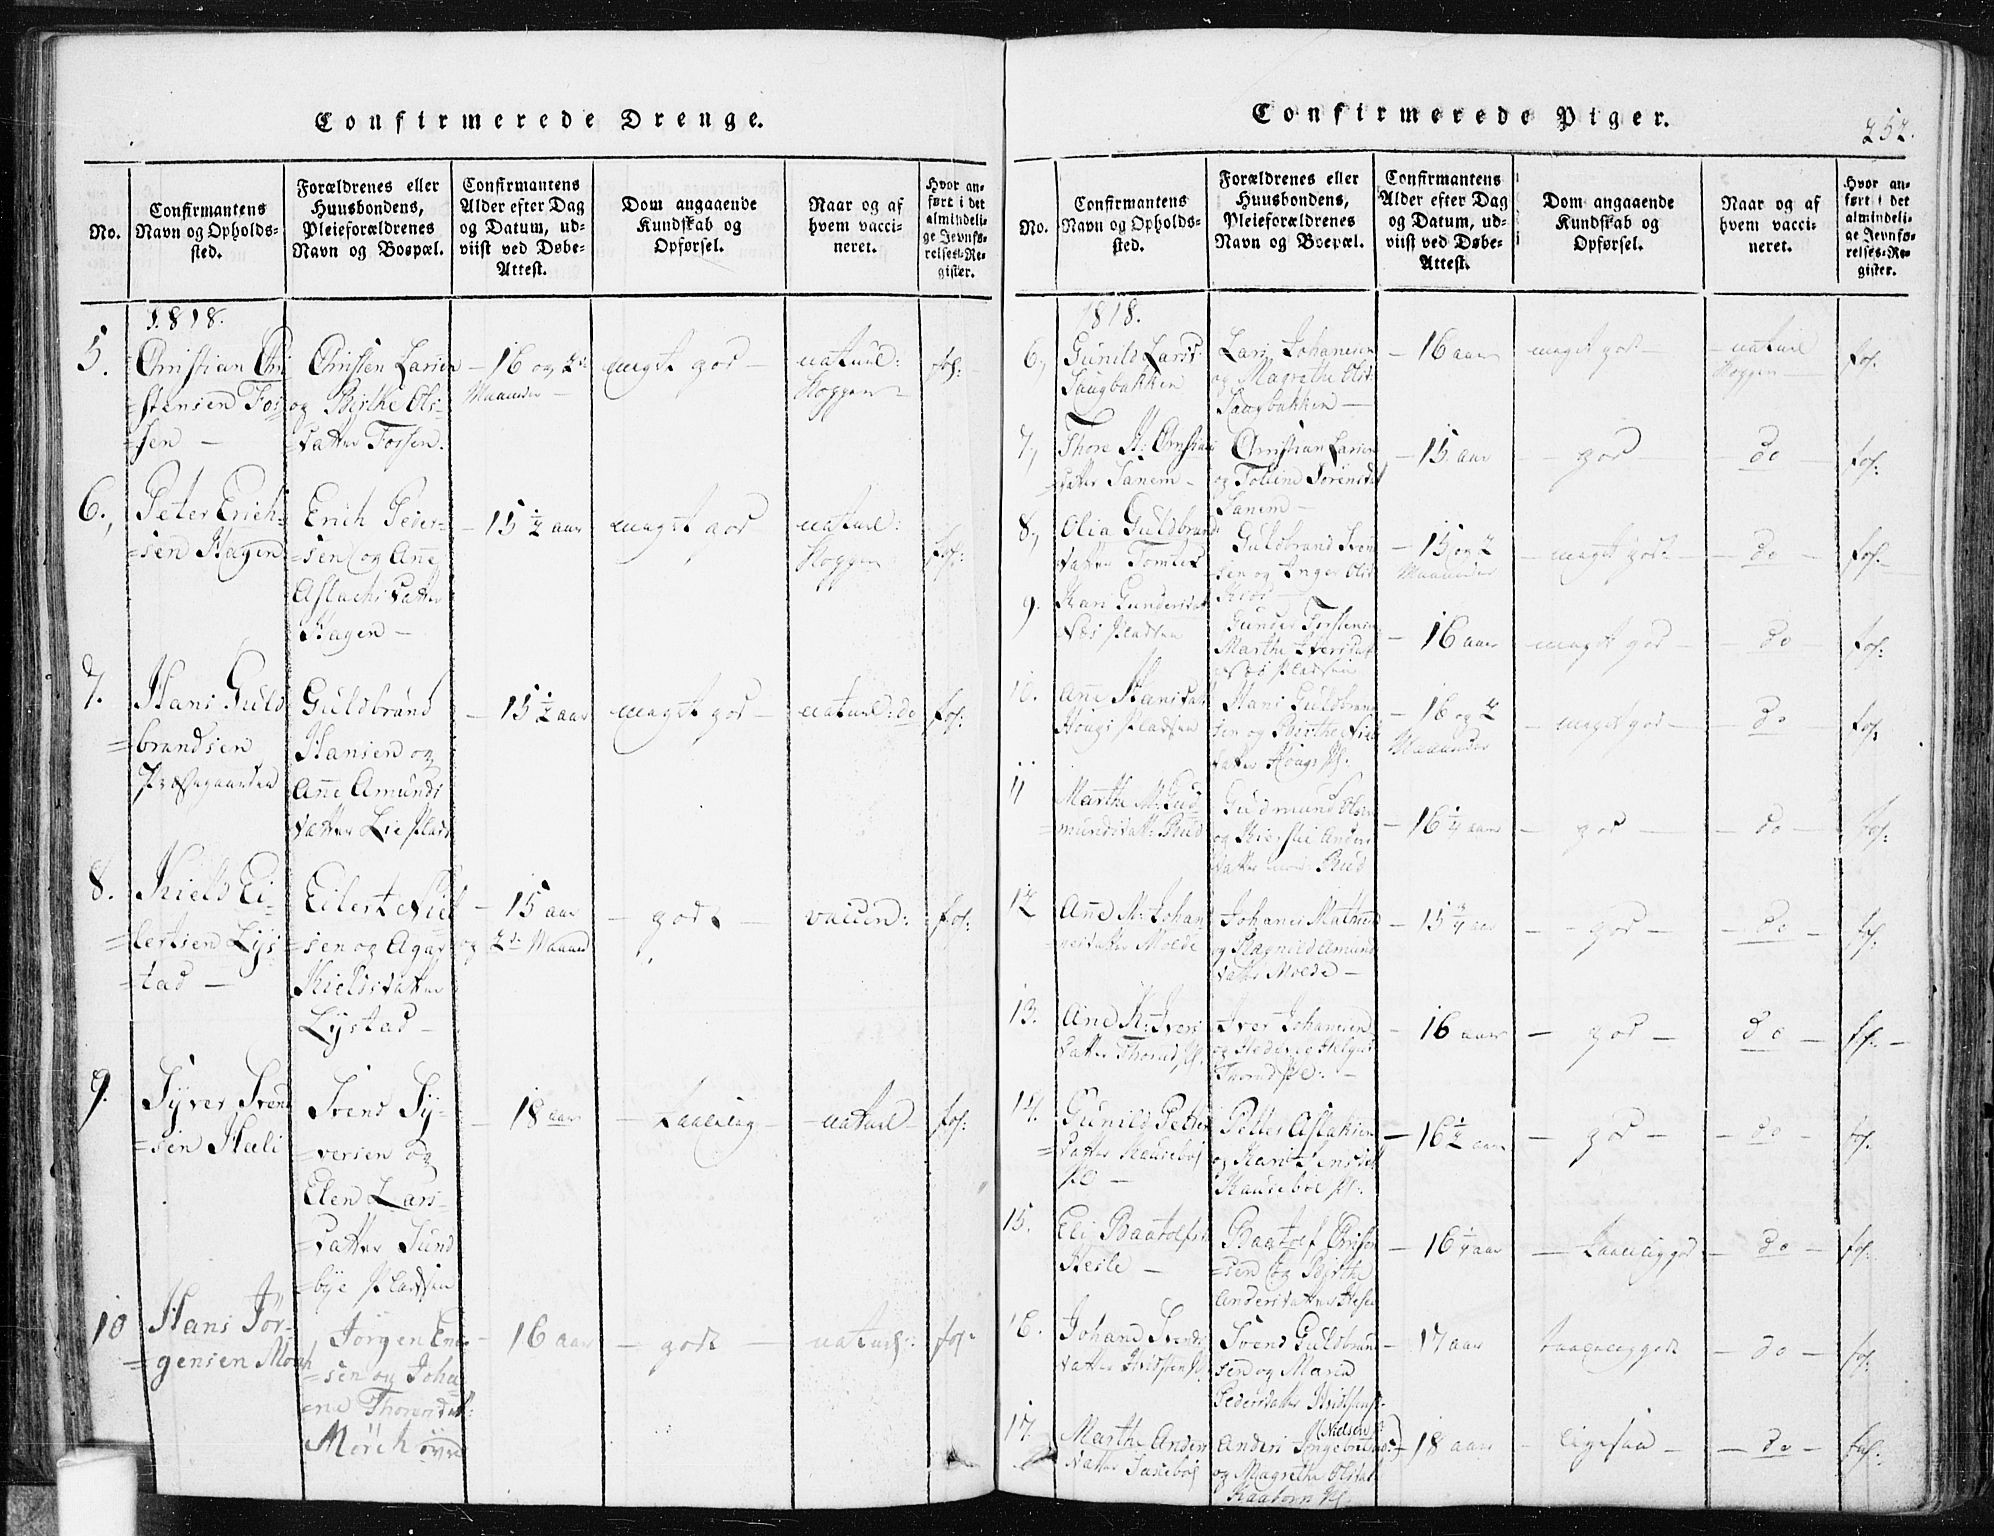 Confirmerede Drenge.
No.
Confirmantens
Navn og Opholds-
sted.
Forældrenes eller
Huusbondens,
Pleieforældrenes
Navn og Bospæl.
Confirmantens
Alder efter Dag
og Datum, ud-
viist ved Døbe-
Attest.
Dom angaaende
Kundskab og
Opførsel.
Naar og af
hvem vacci-
neret.
Hvor an-
ført i det
almindeli-
ge Jevnfø-
relses-Re-
gister.
1818.
5.
Christian Chri
=stensen Fos=
sen —
Christen Larsen
og Birthe Ols=
datter Fossen.
— 16 og 2de
Maaneder —
meget god —
naturl:
Kopper —
fol: —
6.,
Peter Erich=
=sen Hagen
Erich Peder=
=sen og Ane
Aslachsdatter
Hagen —
— 15 ½ aar
meget god
naturl:
Kopper —
fol:
7.
Hans Guld
=brandsen
Præstegaarden
Guldbrand
Hansen og
Ane Amunds
datter Lie Plads
— 15 ½ aar
meget god —
naturl: do
fol:
8.
Kield Ei=
=lertsen Lys
=tad —
Eilert Niel
=sen og Agat
Kieldsdatter
Lystad —
— 15 aar
og 2de Maaned
— god —
vaccin:
fol:
9.
Syver Svend
=sen Hæli
Svend Sy=
=versen og
Elen Lars=
=datter Sund
=bye Pladsen
— 18 aar
— Taalelig —
— naturl —
fol:
10
Hans Jør=
=gensen Mørch
Jørgen Enu
=sen og Joha
ene Thoresdat:
Mørch øvre
— 16 aar
— godt —
naturl:
fol:
Confirmerede Piger.
252.
No.
Confirmantens
Navn og Opholds-
sted.
Forældrenes eller
Huusbondens,
Pleieforældrenes
Navn og Bospæl.
Confirmantens
Alder efter Dag
og Datum, ud-
viist ved Døbe-
Attest.
Dom angaaende
Kundskab og
Opførsel.
Naar og af
hvem vacci-
neret.
Hvor an-
ført i det
almindeli-
ge Jevnfø-
relses-Re-
gister.
1818.
6.,
Gunild Larsd:
Saugbakken
Lars Johanesen
og Magrethe Olsd:
Saugbakken —
— 16 aar
meget god —
— naturl
Kopper —
fol:
7.,
Thore M: Christians
=datter Sanem —
Christian Larsen
og Tolline Sørensdat
Sanem —
— 15 aar
— god —
— do —
fol:
8.,
Olia Guldbrands
datter Tomter
Guldbrand Sven
sen og Inger Olsd
— 15 og 2
Maaneder
— meget godt —
— do —
fol: —
9.
Kari Gundersdat
Næs Pladsen
Gunder Torstensen
Marthe Iversdat
Næs Pladsen
— 16 aar
meget god —
— do
fol:
10.
Ane Hansdat
Hougs Pladsen
Hans Guldbrand
sen og Birthe Niels
datter Hougs Pl.
— 16 og 2
Maaneder
— meget god —
— do —
fol:
11
Marthe M: Gud
mundsdatt: Rud
Gudmund Olsen
og Kierstie Anders
datter Rud
— 16 ¼ aar
— god —
— do —
fol:
12
Ane M: Johan
nesdatter Moede
Johanes Mathies
og Ragnild Amund
datter Moede —
— 15 ¾ aar
— god —
— do —
fol:
13.
Ane K: Ivers
datter Thorud, Pl.
Iver Johanesen
Thorud Pl: —
— 16 aar
— god —
— do —
fol: —
14.
Gunild Petter
=datter Skauseboe
Pl —
Petter Aslaksen
og Kari Jensdat
Skauseboe Pl:
— 16 ½ aar
— god —
— do —
fol:
15.
Eli Baatolfsd
Hesle —
Baatolf Christen
=sen og Birthe
Andersdatter Hesle
— 16 ¼ aar
— taalelig god
— do —
fol:
16.
Johane Svends
datter Hvidsten Pl
Svend Guldbrand
sen og Maria
Pedersdatter Hvidsten Pl
— 17 aar
taalelig godt
— do —
fol:
17.
Marthe Anders
datter Sauseboe
(Nielsen)
Anders Ingebretsen
og Magrethe Olsdat
Kaaborn Pl.
— 18 aar
— ligesaa —
— do —
fol: